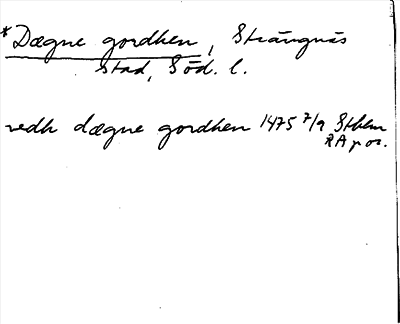 *Dægne gordhen, Strängnäs
stad, Söd. l.
vedh dægne gordhen 1475 7/9 Sthlm
RA p or.